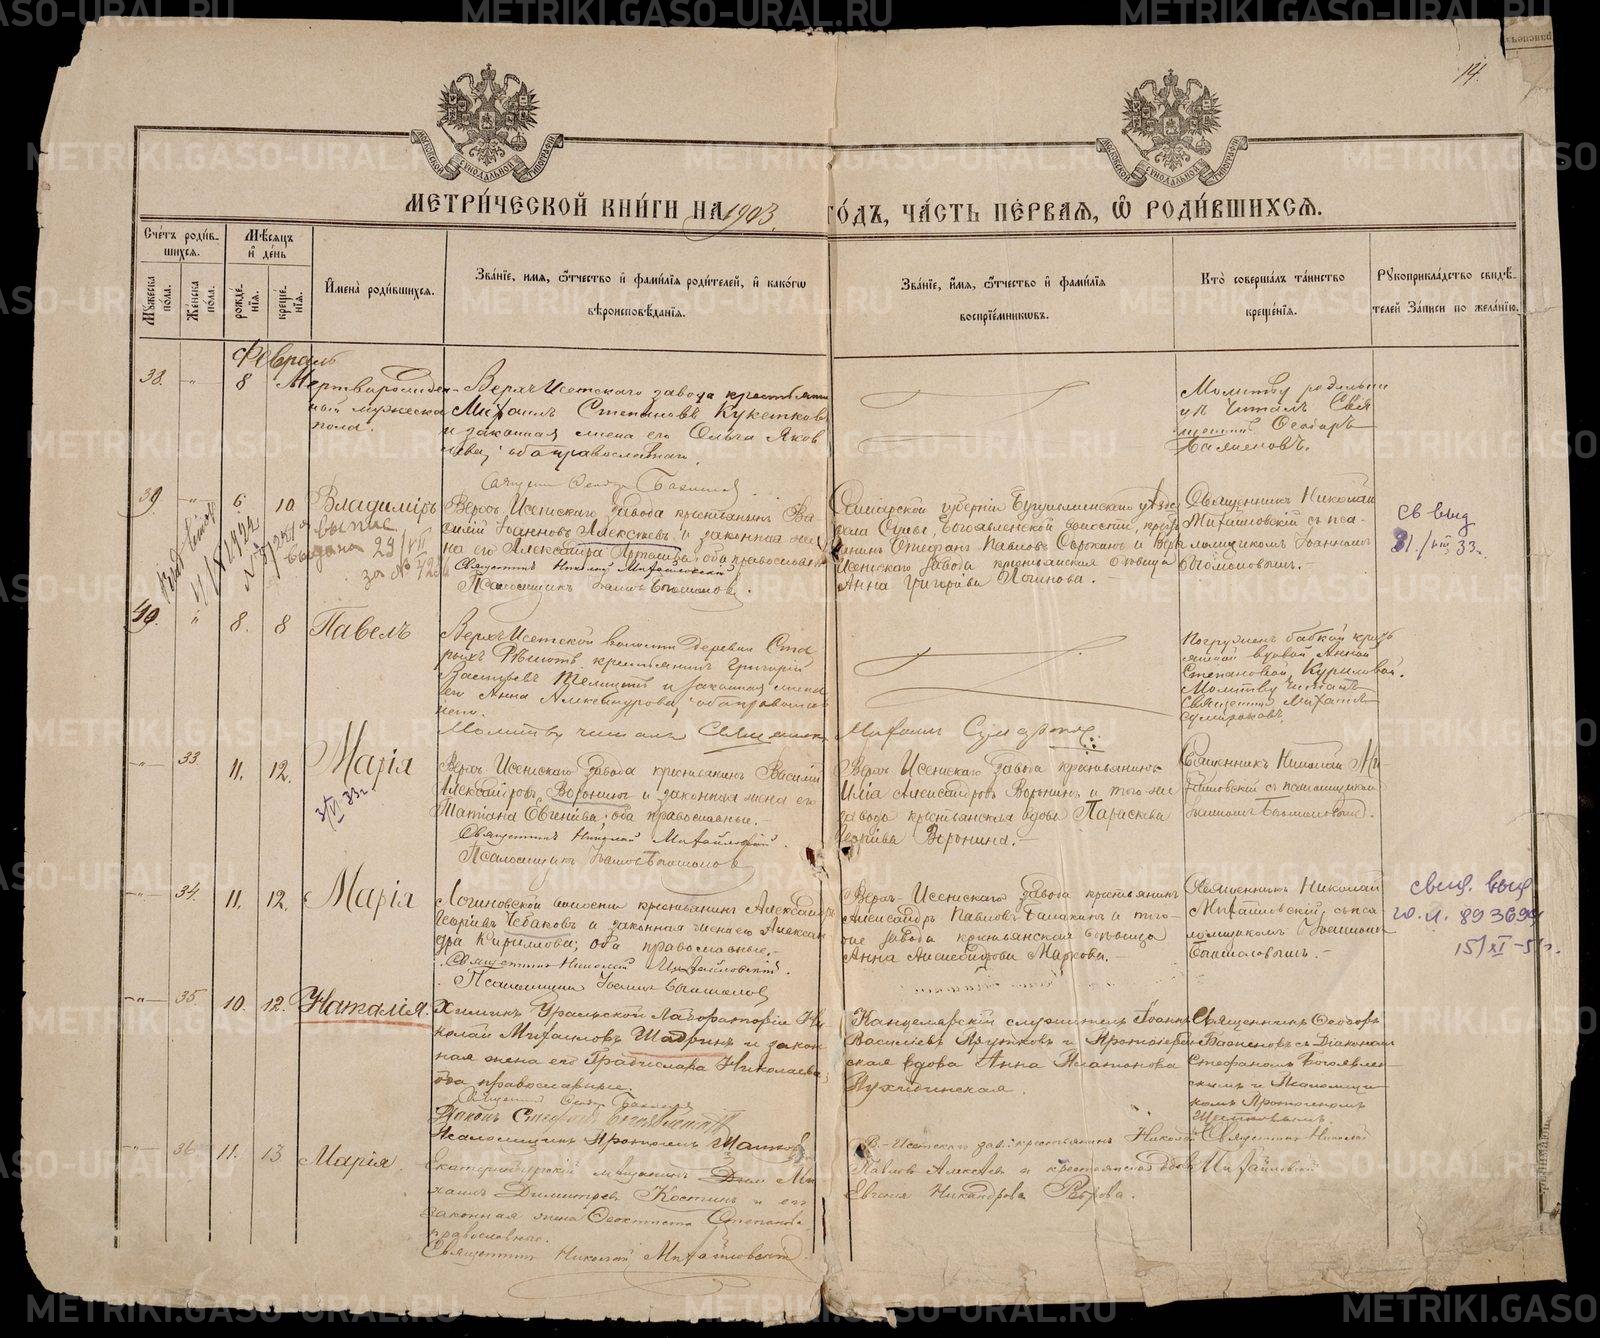 14.
МЕТРИ́ЧЕСКОЙ КНИ́ГИ НА 1903. ГО́ДЪ, ЧА́СТЬ ПЕ́РВАЯ, Ѿ РОДИ́ВШИХСЯ.
Сче́тъ роди́в-
шихся.
Му́жеска пола.
Же́нска по́ла.
Мѣ́сяцъ
и҆ де́нь
рожде́нїя.
креще́нїя.
И҆мена̀ роди́вшихся.
Зва́нїе, имя, ѻ҆́тчество и҆ фами́лїѧ роди́телей, и҆ како́гѡ
вѣроисповѣ́данїѧ.
Зва́нїе, и҆́мя, ѻ҆́тчество и҆ фами́лїѧ
воспрїе́мникѡвъ.
Кто̀ соверша́лъ та́инство
креще́нїя.
Рꙋкоприкла́дство свидѣ́-
телей За́писи по жела́нїю.
Февраль
38. 8 Мертворожден-
ный мужеска
пола.
Верхъ Исетскаго завода крестьянинъ
Михаилъ Степановъ
и законная жена его Ольга Яков
лева, оба православнаго
Молитву родильни
цѣ читалъ Свя
щенникъ Ѳеодоръ
39. 6 10 Владиміръ
Верхъ Исетскаго завода крестьянинъ Ва
силій Іоанновъ Алексѣевъ и законная же
на его Александра Артемьева, оба православн
Священникъ Николай Михайловскій
Псаломщикъ
Самарской губерніи Бузулукскаго уѣзда
села Богоявленской волости, крест
янинъ Стефанъ Павловъ Сорокинъ и Верх
Исетскаго завода крестьянская дѣвица
Анна Григорьева Логинова.
Священникъ Николай
Михайловскій съ пса
ломщикомъ Іоанномъ
св выд
31./VIII 33г.
выпис
выдана 29/VII
за №
40. 8. 8 Павелъ
Верхъ Исетской волости деревни Ста
рыхъ Рѣшетъ крестьянинъ Григорій
и законная жена
его Анна Александрова, оба православ
наго.
Молитву читалъ Священникъ Михаилъ
Погруженъ бабкой крест
янкой вдовой Анной
Степановой Куриловой.
Молитву читалъ
священникъ Михаилъ
33. 11. 12. Марія
3/VI 33г.
Верхъ Исетскаго завода крестьянинъ Василій
Александровъ Воронинъ и законная жена его
Татіана Евгеніева, оба православные.
Священникъ Николай Михайловскій.
Псаломщикъ
Верхъ Исетскаго завода крестьянинъ
Илія Александровъ Воронинъ и того же
завода крестьянская вдова Параскева
Георгіева Воронина.
Священникъ Николай Ми-
хайловскій съ псаломщикомъ
34. 11. 12. Марія
Логиновской волости крестьянинъ Александръ
Георгіевъ Чебаковъ и законная жена его Алексан
дра Кириллова, оба православные.
Священникъ Николай Михайловскій.
Псаломщикъ
Верхъ-Исетскаго завода крестьянинъ
Александръ Павловъ Балакинъ и того-
же завода крестьянская дѣвица
Анна Маркова.
Священникъ Николай
Михайловскій съ пса
ломщикомъ Іоанномъ
свид. выд
ю. л. 893694
15/XI-51г.
35. 10. 12. Наталія.
Химикъ Уральской Лабораторіи Ни
колай Михаиловъ Шадринъ и закон
ная жена его Градислава Николаева,
оба православные.
Діаконъ Стефанъ Богоявленскій
Псаломщикъ
Канцелярскій служитель Іоаннъ
Васильевъ и Протоіерей
ская вдова Анна Платонова
Священникъ Ѳеодоръ
съ Діакономъ
Стефаномъ Богоявлен-
скимъ и Псаломщи
комъ
36. 11. 13 Марія.
Екатеринбургскій мѣщанинъ Ми
хаилъ Димитріевъ Костинъ и его
законная жена Ѳеоктиста Степанова
православные.
Священникъ Николай Михайловскій
В.-Исетскаго зав. крестьянинъ Николай
Павловъ Алексѣевъ и крестьянская вдова
Евгенія Никандрова
Священникъ Николай
Михайловскій
METRIKI.GASO-URAL.RU